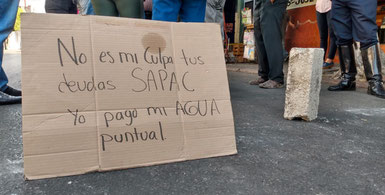 No es mi culpa tus
deudas SAPAC
Yo pago mi AGUA
puntual